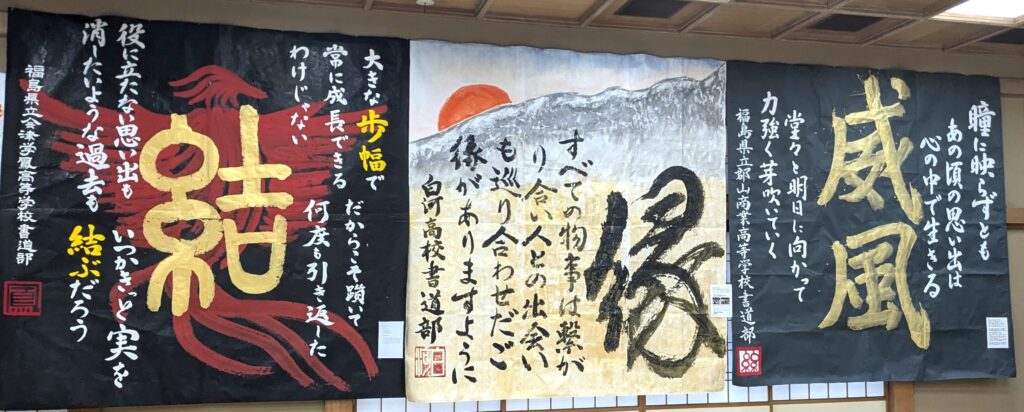 瞳に映らずとも
あの頃の思い出は
心の中で生きる
威風
堂々と明日に向かって
力強く芽吹いていく
福島県立郡山商業高等学校書道部
縁
すべての物事は繋が
り合い人との出会い
も巡り合わせだご
縁がありますように
白河高校書道部
大きな歩幅で
常に成長できる
わけじゃない
だからこそ躓いて
何度も引き返した
結
役に立たない思い出も
消したいような過去も
いつかきっと実を
結ぶだろう
福島県立会津学鳳高等学校書道部